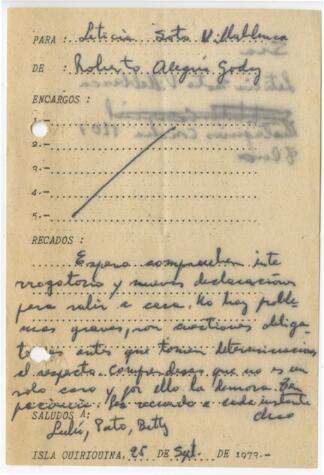 PARA: Leticia Soto Villablanca
DE: Roberto Alegría Godoy
ENCARGOS:
1.-
2.-
3.-
4.-
5.-
RECADOS:
Espero comprueben inte
rrogatorio y nuevas declaraciones
para salir a casa. No hay proble
mas graves, son cuestiones obliga
torias antes que tomen determinaciones
al respecto. Comprendisas que no es un
solo caso y por ello la demora. Ten
paciencia. Les recuerdo a cada instante
SALUDOS A: chao
Luli, Pato, Betty
ISLA QUIRIQUINA, 25 de Sept. de 1973.-